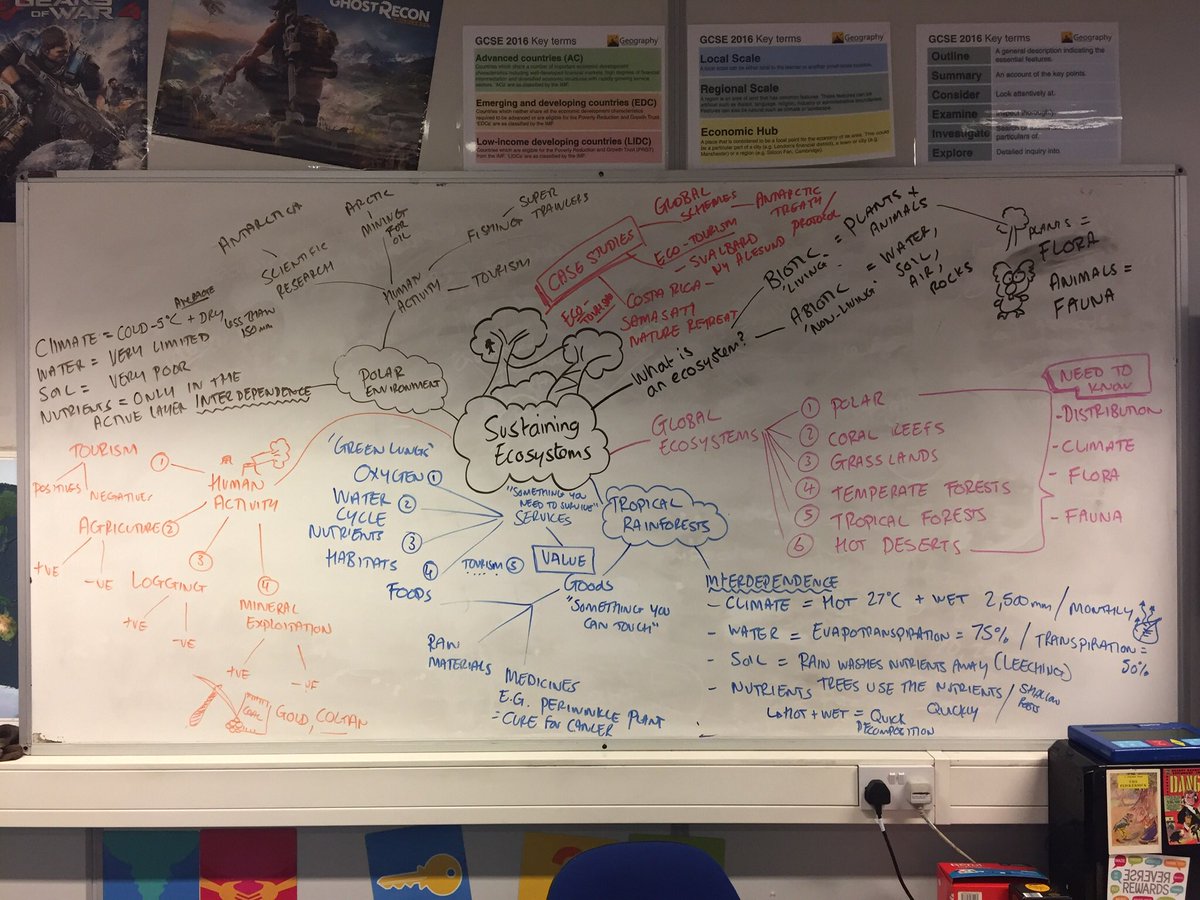 GEARS
OF WAR 4
GHOST RECON
GCSE 2016 Key terms
Geography
Advanced countries (AC)
Emerging and developing countries (EDC)
Low-income developing countries (LIDC)
GCSE 2016 Key terms
Geography
Local Scale
Regional Scale
Economic Hub
GCSE 2016 Key terms
Geography
Outline
A general description indicating the
essential features.
Summary
An account of the key points.
Consider
Look attentively at.
Examine
Inspect thoroughly.
Investigate
particulars of.
Explore
Detailed inquiry into.
Sustaining
Ecosystems
POLAR
ENVIRONMENT
HUMAN
ACTIVITY
SCIENTIFIC
RESEARCH
ANTARCTICA
ARCTIC
MINING
FOR
OIL
FISHING
SUPER
TRAWLERS
TOURISM
AVERAGE
CLIMATE = COLD -5°C + DRY
LESS THAN
150mm
WATER = VERY LIMITED
SOIL = VERY POOR
NUTRIENTS = ONLY IN THE
ACTIVE LAYER
INTERDEPENDENCE
CASE STUDIES
GLOBAL
SCHEMES
ANTARCTIC
TREATY/
PROTOCOL
ECO-TOURISM
- SVALBARD
NY ALESUND
ECO-
TOURISM
COSTA RICA -
SAMASATI
NATURE RETREAT
What is
an ecosystem?
BIOTIC = PLANTS +
'LIVING' ANIMALS
ABIOTIC = WATER,
'NON-LIVING' SOIL,
AIR,
ROCKS
PLANTS =
FLORA
ANIMALS =
FAUNA
GLOBAL
ECOSYSTEMS
1 POLAR
2 CORAL REEFS
3 GRASSLANDS
4 TEMPERATE FORESTS
5 TROPICAL FORESTS
6 HOT DESERTS
NEED TO
KNOW
- DISTRIBUTION
- CLIMATE
- FLORA
- FAUNA
HUMAN
ACTIVITY
TOURISM 1
POSITIVES
NEGATIVES
AGRICUTURE 2
+VE
-VE
3
LOGGING
+VE
-VE
4
MINERAL
EXPLOITATION
+VE
-VE
COAL
GOLD, COLTAN
TROPICAL
RAINFORESTS
VALUE
"SOMETHING YOU
NEED TO SURVIVE"
SERVICES
"GREEN LUNGS"
OXYGEN 1
WATER 2
CYCLE
NUTRIENTS 3
HABITATS 4
TOURISM 5
GOODS
"SOMETHING YOU
CAN TOUCH"
FOODS
RAW
MATERIALS
MEDICINES
E.G. PERIWINKLE PLANT
= CURE FOR CANCER
INTERDEPENDENCE
- CLIMATE = HOT 27°C + WET 2,500mm / MONTHLY
- WATER = EVAPOTRANSPIRATION = 75% / TRANSPIRATION =
50%
- SOIL = RAIN WASHES NUTRIENTS AWAY (LEECHING)
- NUTRIENTS TREES USE THE NUTRIENTS / SHALLOW
QUICKLY ROOTS
HOT + WET = QUICK
DECOMPOSITION
REVERSE
REWARDS